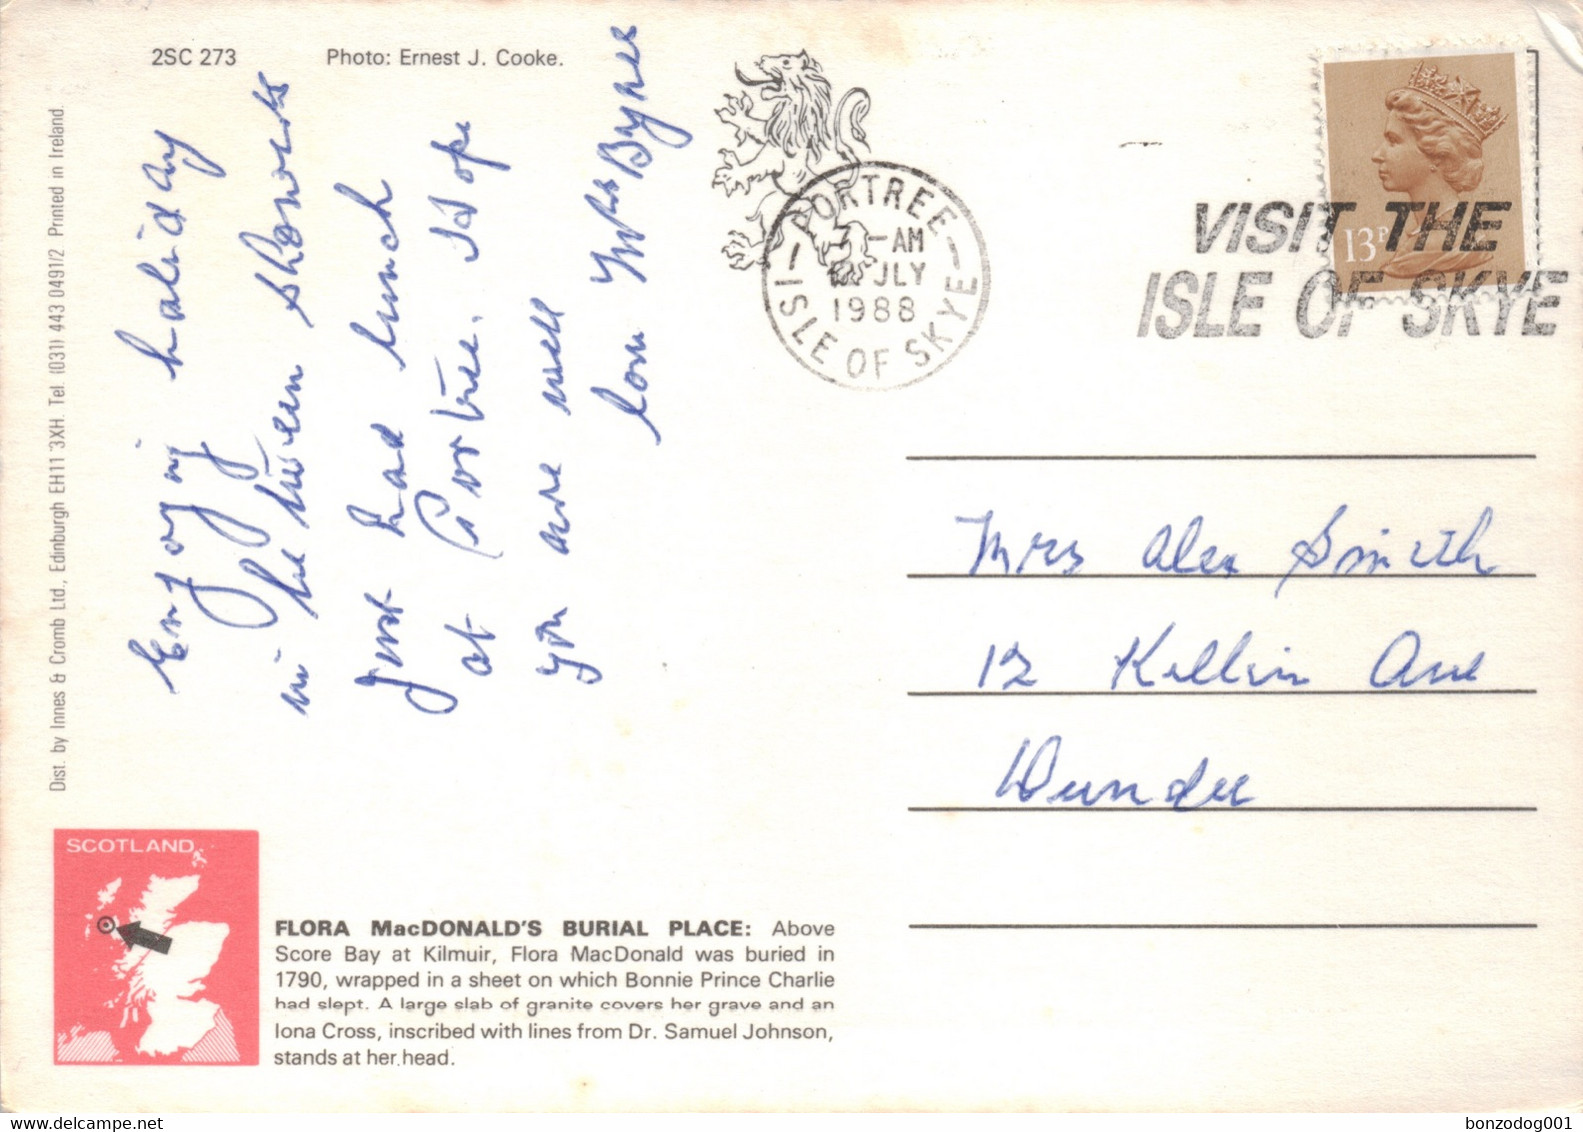 2SC 273
Photo: Ernest J. Cooke.
Dist. by Innes & Cromb Ltd., Edinburgh EH11 3XH. Tel. (031) 443 0491/2 Printed in Ireland.
Enjoying holiday
in between showers
just had lunch
at Portree. Hope
you are well
love Mrs Byrnes
PORTREE
AM
JLY
1988
ISLE OF SKYE
VISIT THE
ISLE OF SKYE
13P
Mrs Alex Smith
12 Killin Ave
Dundee
SCOTLAND
FLORA MacDONALD'S BURIAL PLACE: Above
Score Bay at Kilmuir, Flora MacDonald was buried in
1790, wrapped in a sheet on which Bonnie Prince Charlie
had slept. A large slab of granite covers her grave and an
Iona Cross, inscribed with lines from Dr. Samuel Johnson,
stands at her head.
bonzodog001